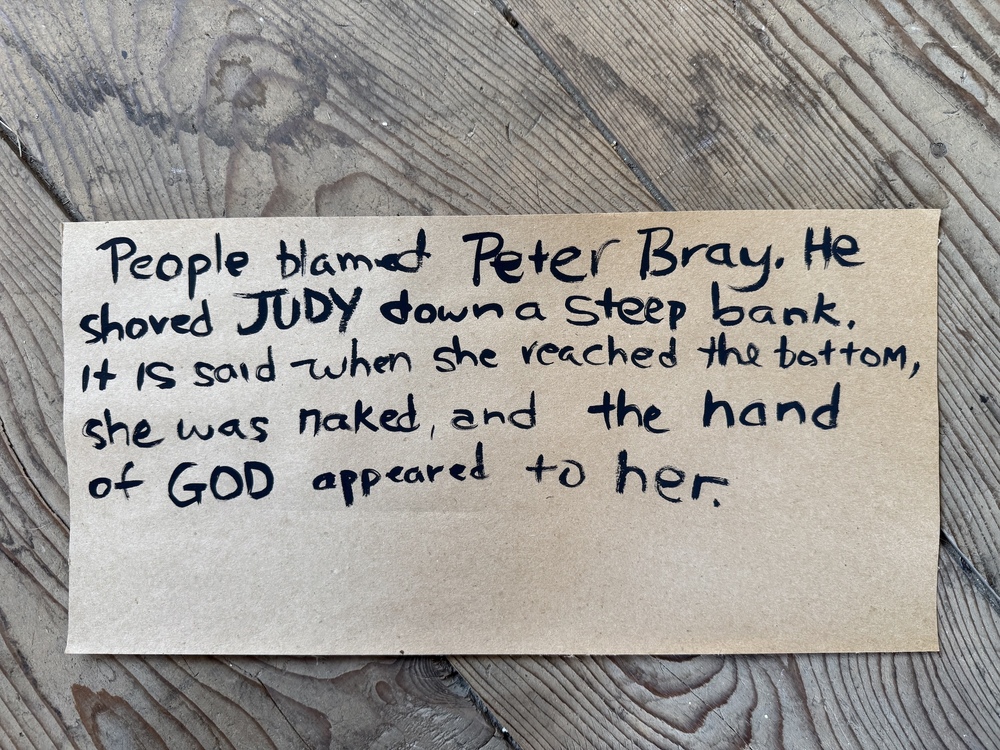 People blamed Peter Bray. He
shoved JUDY down a steep bank.
it is said when she reached the bottom,
she was naked, and the hand
of GOD appeared to her.